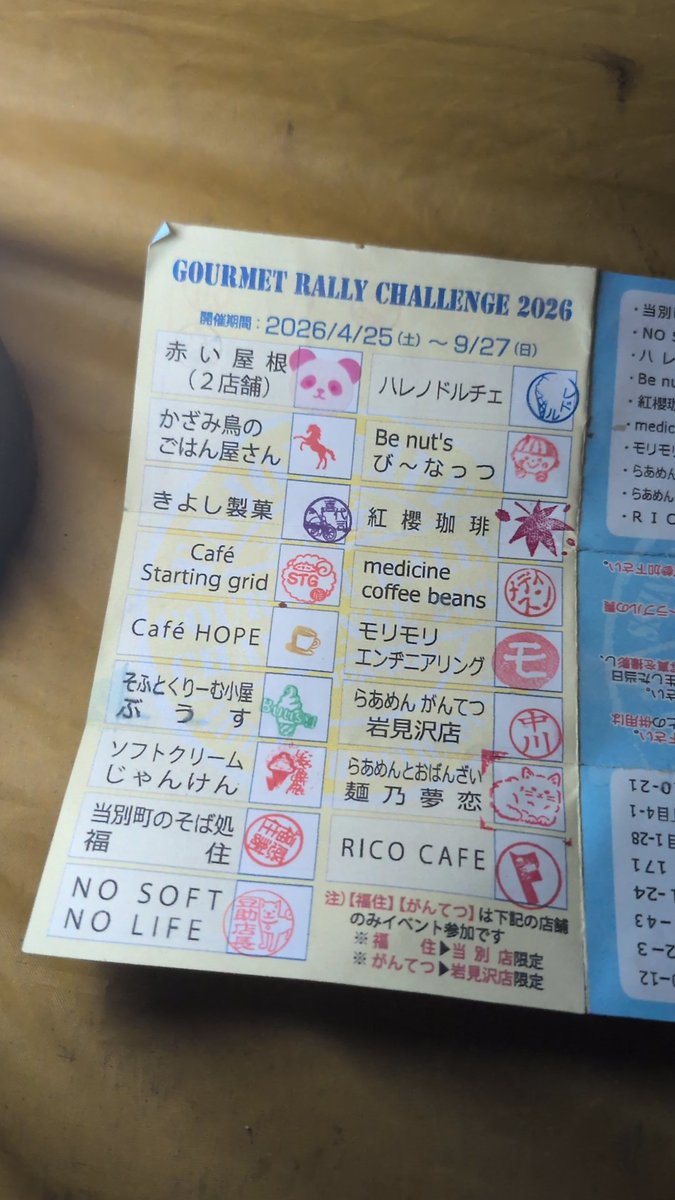 GOURMET RALLY CHALLENGE 2026
開催期間：2026/4/25(土)～9/27(日)
赤い屋根
（２店舗）
ハレノドルチェ
かざみ鳥の
ごはん屋さん
Be nut's
び～なっつ
きよし製菓
喜代司
紅櫻珈琲
Café
Starting grid
STG
medicine
coffee beans
Café HOPE
モリモリ
エンヂニアリング
モ
そふとくりーむ小屋
ぶうす
らあめん がんてつ
岩見沢店
中川
ソフトクリーム
じゃんけん
らあめんとおばんざい
麺乃夢恋
当別町のそば処
福住
RICO CAFE
NO SOFT
NO LIFE
豆助店長
注)【福住】【がんてつ】は下記の店舗
のみイベント参加です
※福住▶当別店限定
※がんてつ▶岩見沢店限定
・当別
・NO S
・ハレ
・Be nu
・紅櫻
・medic
・モリモリ
・らあめん
・らあめん
・ＲＩＣ